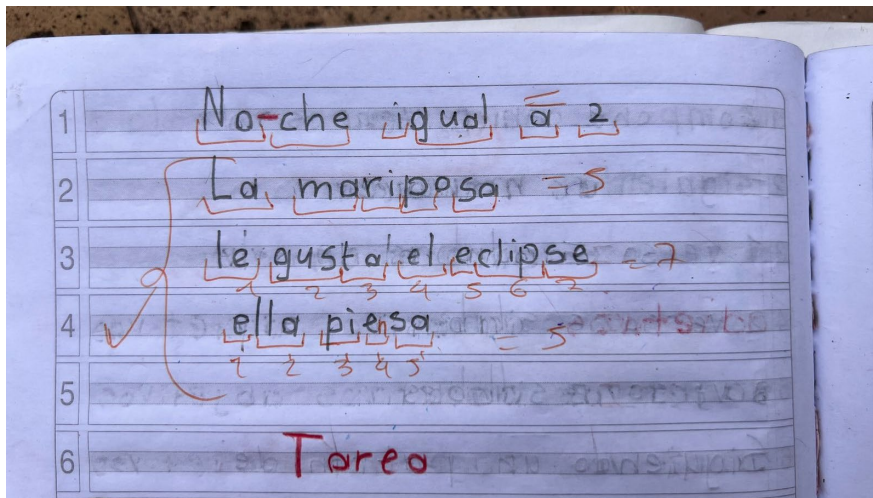 1 No-che igual a 2
2 La mariposa = 5
3 le gusta el eclipse = 7
1 2 3 4 5 6 7
4 ella piensa = 5
1 2 3 4 5
5
6 Tarea